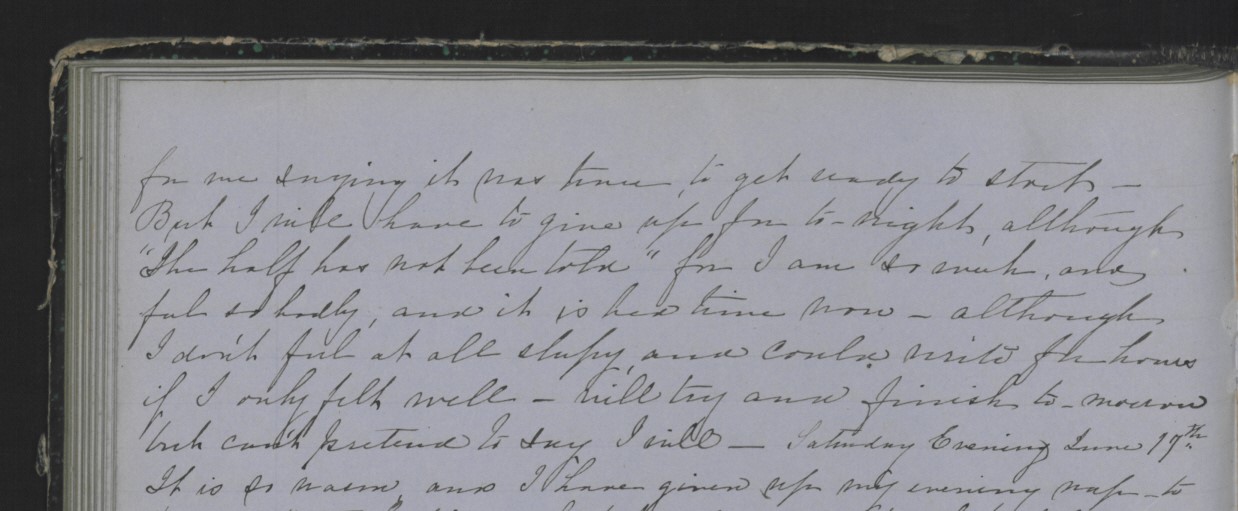 for me saying it was time, to get ready to start –
But I will have to give up for to-night, although
"The half has not been told" for I am so weak, and
feel so badly, and it is bed time now – although
I don't feel at all sleepy, and could write for hours
if I only felt well – will try and finish to-morrow
but can't pretend to say I will – Saturday Evening June 17th
It is so warm, and I have given up my evening nap – to